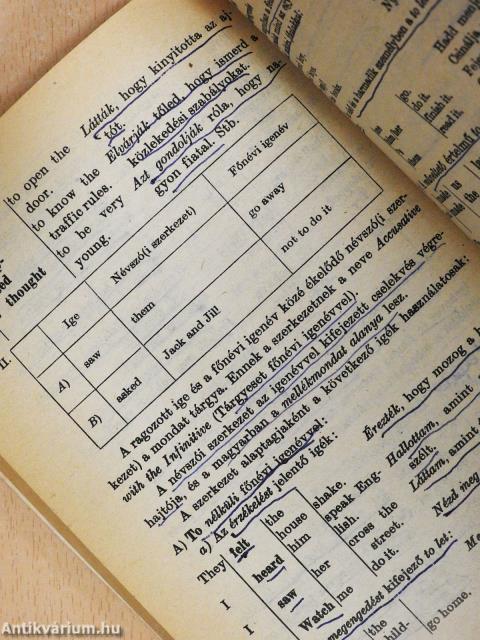 to open the door. Látták, hogy kinyitotta az aj-
tót.
to know the traffic rules. Elvárják tőled, hogy ismerd a
közlekedési szabályokat.
to be very young. Azt gondolják róla, hogy na-
gyon fiatal. Stb.
thought
II.
Ige Névszó(i szerkezet) Főnévi igenév
A) saw them go away
B) asked Jack and Jill not to do it
A ragozott ige és a főnévi igenév közé ékelődő névszó(i szer-
kezet) a mondat tárgya. Ennek a szerkezetnek a neve Accusative
with the Infinitive (Tárgyeset főnévi igenévvel).
A névszói szerkezet az igenévvel kifejezett cselekvés végre-
hajtója, és a magyarban a mellékmondat alanya lesz.
A szerkezet alaptagjaként a következő igék használatosak:
A) To nélküli főnévi igenévvel:
a) Az érzékelést jelentő igék:
They felt the house shake. Érezték, hogy mozog a h
I heard him speak Eng-
lish. Hallottam, amint
szélt.
I saw her cross the
street. Láttam, amint
Watch me do it. Nézd meg
megengedést kifejező to let:
go home.
go.
do it.
finish it.
read it.
Hadd menj
Csinálja
us
the
Antikvárium.hu